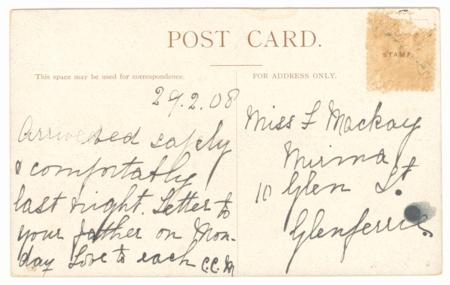 POST CARD.
This space may be used for correspondence.
FOR ADDRESS ONLY.
STAMP
29.2.08
Arrived safely
& comfortably
last night. Letter to
your father on Mon-
day Love to each C.C.M
Miss F Mackay
Mirma
10 Glen St.
Glenferrie.